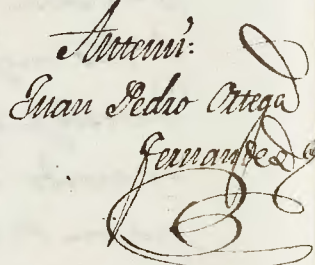 Antemi:
Juan Pedro Ortega
Fernandez